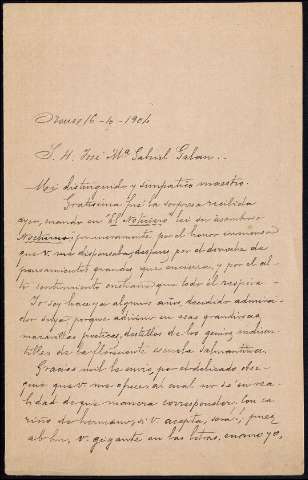 Orense 16-4-1904
S. D. José Mª Gabriel Galan..
Mi distinguido y simpatico maestro.
Gratisima fué la sorpresa recibida
ayer, cuando en "El Noticiero" lei su asombroso
Nocturno, primeramente por el honor inmenso
que V. me dispensaba, despues por el derroche de
pensamientos grandes que encierra, y por el al-
to sentimiento cristiano que todo él respira.
Yo soy hace ya algunos años decidido admira-
dor suyo, porque adivino en esas grandiosas
maravillas poeticas, destellos de los genios indiscu-
tibles de la floreciente escuela Salmantina.
Gracias mil le envio, por el delicado obse-
quio que V. me ofrece, al cual no sé en rea-
lidad de que manera corresponder, con ca-
riño de hermano, si V. acepta, será, pues
V. gigante en las letras, enano yo,